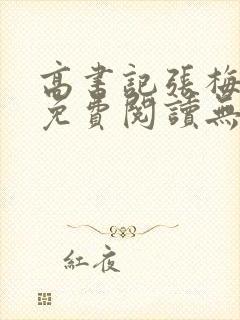 高書記張梅
免費閱讀無
紅夜